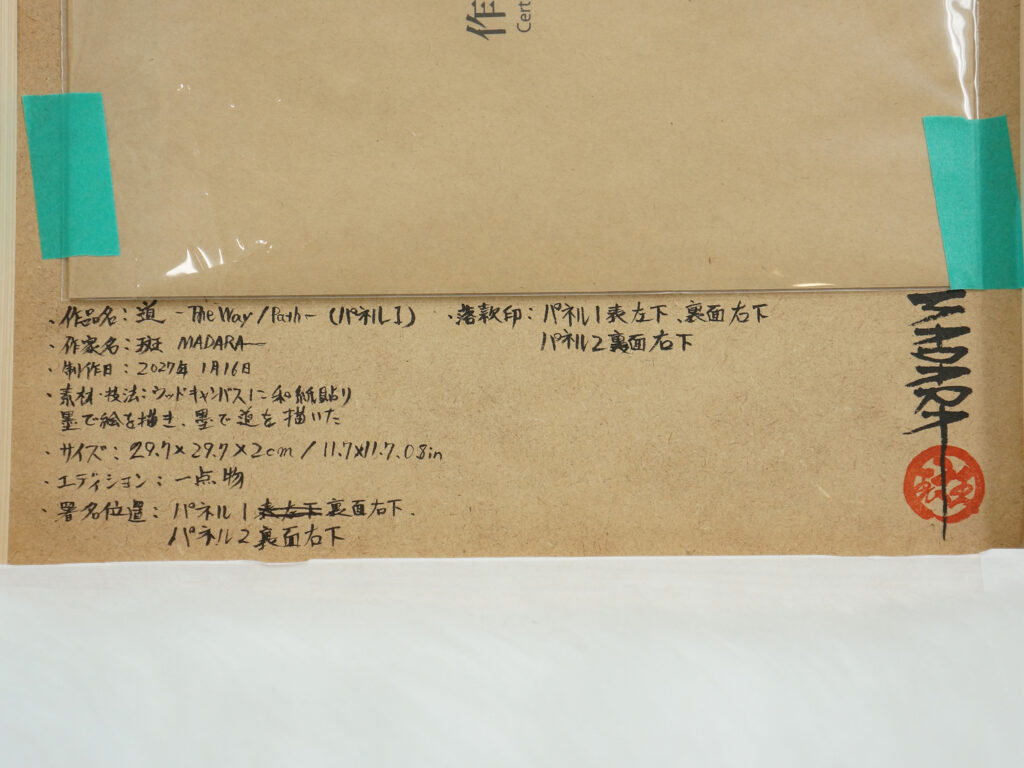 作
Cert
・作品名：道 -The Way/Path-（パネル1）
・作家名：斑 MADARA
・制作日：2027年1月16日
・素材・技法：ウッドキャンバスに和紙貼り
墨で絵を描き、墨で道を描いた
・サイズ：29.7×29.7×2cm / 11.7×11.7.08in
・エディション：一点物
・署名位置：パネル1 表左下 裏面右下.
パネル2 裏面右下
・落款印：パネル1 表左下、裏面右下
パネル2 裏面右下
MADARA